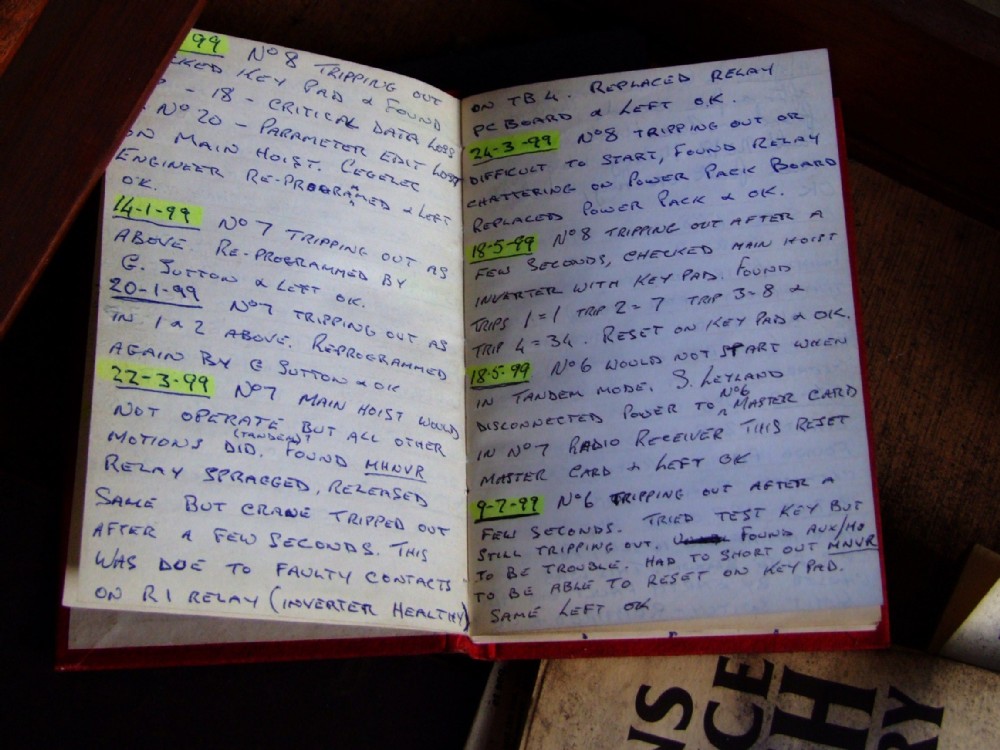 99 No 8 TRIPPING OUT
KEY PAD & FOUND
- 18 - CRITICAL DATA LOSS
No 20 - PARAMETER EDIT LOST
ON MAIN HOIST. CEGELEC
ENGINEER RE-PROGRAMMED & LEFT
OK.
14-1-99 No 7 TRIPPING OUT AS
ABOVE. RE-PROGRAMMED BY
G. SUTTON & LEFT OK.
20-1-99 No 7 TRIPPING OUT AS
IN 1 & 2 ABOVE. REPROGRAMMED
AGAIN BY G SUTTON & OK
22-3-99 No 7 MAIN HOIST WOULD
NOT OPERATE BUT ALL OTHER
MOTIONS DID. (TANDEM) FOUND MHNVR
RELAY SPRAGGED, RELEASED
SAME BUT CRANE TRIPPED OUT
AFTER A FEW SECONDS. THIS
WAS DUE TO FAULTY CONTACTS
ON R1 RELAY (INVERTER HEALTHY)
ON TB4. REPLACED RELAY
PC BOARD & LEFT OK.
24-3-99 No 8 TRIPPING OUT OR
DIFFICULT TO START, FOUND RELAY
CHATTERING ON POWER PACK BOARD
REPLACED POWER PACK & OK.
18-5-99 No 8 TRIPPING OUT AFTER A
FEW SECONDS, CHECKED MAIN HOIST
INVERTER WITH KEY PAD. FOUND
TRIPS 1=1 TRIP 2=7 TRIP 3=8 &
TRIP 4=34. RESET ON KEY PAD & OK.
18-5-99 No 6 WOULD NOT START WHEN
IN TANDEM MODE. S. LEYLAND
DISCONNECTED POWER TO No 6 MASTER CARD
IN No 7 RADIO RECEIVER THIS RESET
MASTER CARD & LEFT OK
9-7-99 No 6 TRIPPING OUT AFTER A
FEW SECONDS. TRIED TEST KEY BUT
STILL TRIPPING OUT. FOUND AUX/HO
TO BE TROUBLE. HAD TO SHORT OUT MHNVR
TO BE ABLE TO RESET ON KEY PAD.
SAME LEFT OK